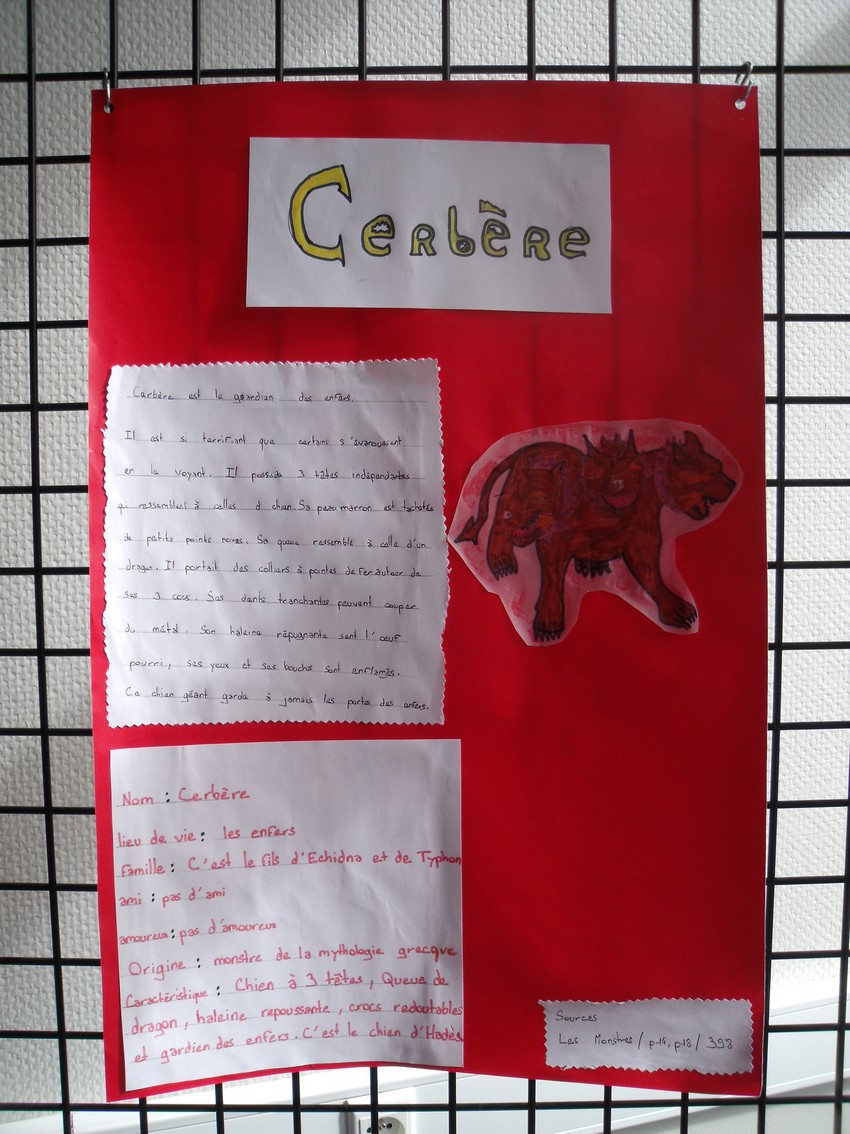 Cerbère
Cerbère est le gardian des enfers.
Il est si terrifiant que certains s'évanouissent
en le voyant. Il possède 3 têtes indépendantes
qui ressemblent à celles d chien. Sa peau marron est tachetée
de petits points noires. Sa queue ressemble à celle d'un
dragon. Il portait des colliers à pointes de fer autour de
ses 3 cous. Ses dents tranchantes peuvent couper
du métal. Son haleine répugnante sent l'œuf
pourri, ses yeux et ses bouches sont enflamés.
Ce chien géant garde à jamais les portes des enfers.
Nom : Cerbère
lieu de vie : les enfers
Famille : C'est le fils d'Echidna et de Typhon
ami : pas d'ami
amoureux : pas d'amoureux
Origine : monstre de la mythologie grecque
Caractéristique : Chien à 3 têtes, Queue de
dragon, haleine repoussante, crocs redoutables
et gardien des enfers. C'est le chien d'Hadès
Sources
Les Monstres / p14, p18 / 398